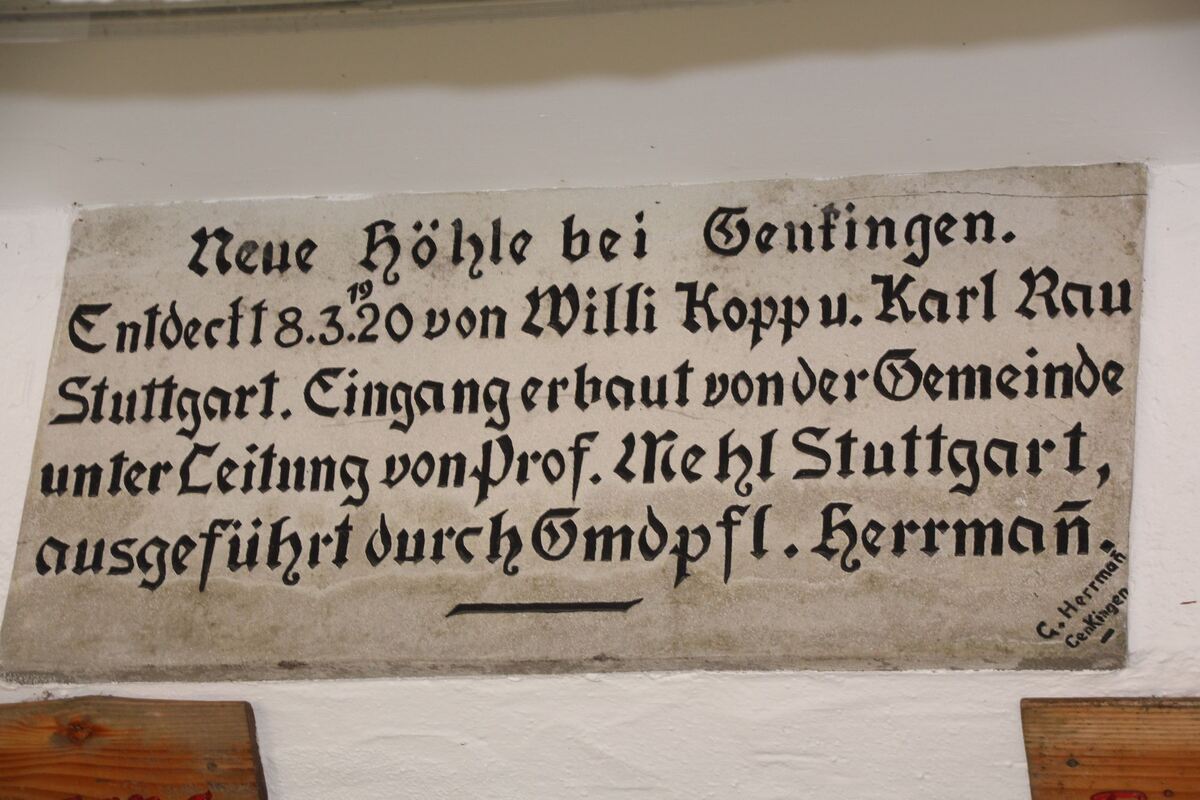 Neue Höhle bei Genkingen.
Entdeckt 8.3.1920 von Willi Kopp u. Karl Rau
Stuttgart. Eingang erbaut von der Gemeinde
unter Leitung von Prof. Mehl Stuttgart,
ausgeführt durch Gmdpfl. Herrmañ.
G. Herrmañ
Genkingen